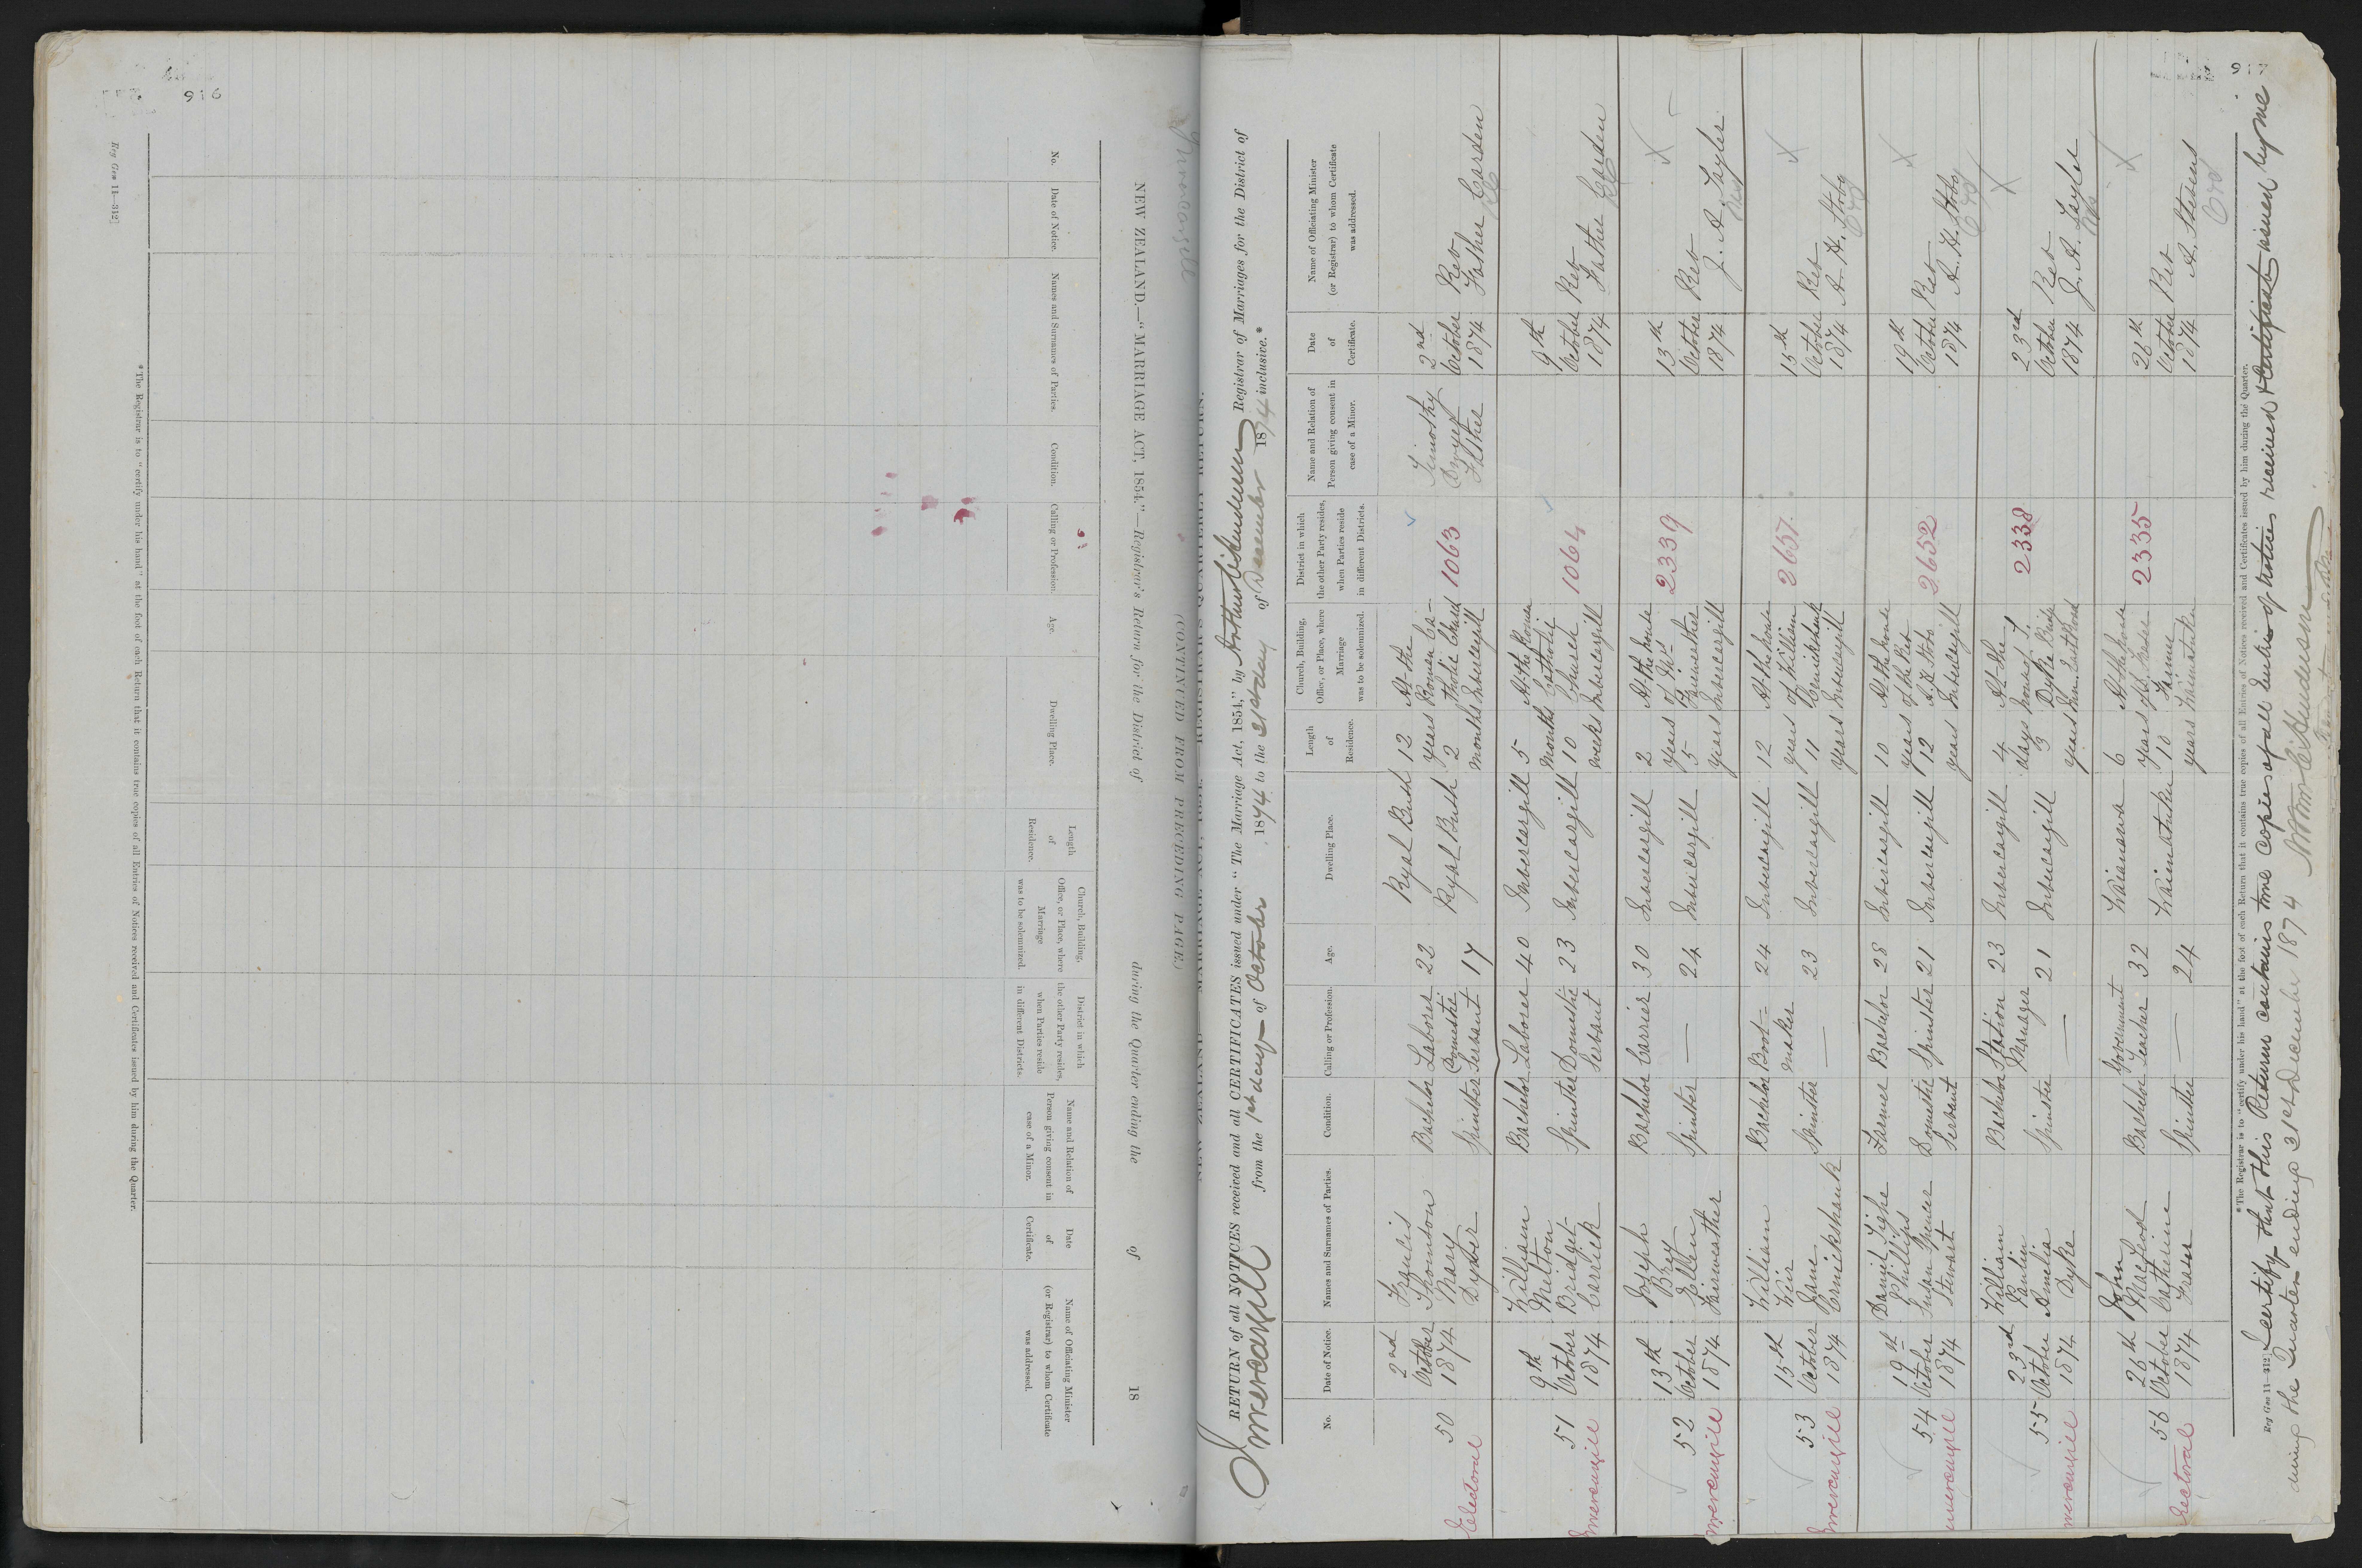 916
NEW ZEALAND.—"MARRIAGE ACT, 1854."—Registrar's Return for the District of during the Quarter ending the of 18
(CONTINUED FROM PRECEDING PAGE.)
No.
Date of Notice.
Names and Surnames of Parties.
Condition.
Calling or Profession.
Age.
Dwelling Place.
Length of Residence.
Church, Building, Office, or Place, where Marriage was to be solemnized.
District in which the other Party resides, when Parties reside in different Districts.
Name and Relation of Person giving consent in case of a Minor.
Date of Certificate.
Name of Officiating Minister (or Registrar) to whom Certificate was addressed.
* The Registrar is to "certify under his hand" at the foot of each Return that it contains true copies of all Entries of Notices received and Certificates issued by him during the Quarter.
Reg Gen 11—312]
917
RETURN of all NOTICES received and all CERTIFICATES issued under "The Marriage Act, 1854," by Registrar of Marriages for the District of
Invercargill from the 1st day of October 1874 to the 31st day of December 1874 inclusive.*
No.
Date of Notice.
Names and Surnames of Parties.
Condition.
Calling or Profession.
Age.
Dwelling Place.
Length of Residence.
Church, Building, Office, or Place, where Marriage was to be solemnized.
District in which the other Party resides, when Parties reside in different Districts.
Name and Relation of Person giving consent in case of a Minor.
Date of Certificate.
Name of Officiating Minister (or Registrar) to whom Certificate was addressed.
50
2nd October 1874
Francis Thornton
Mary Dwyer
Bachelor
Spinster
Laborer
Domestic Servant
22
17
Ryal Bush
Ryal Bush
12 years
2 months
At the Roman Catholic Church Invercargill
1063
Timothy Dwyer Father
2nd October 1874
Rev Father Carden
RC
51
Invercargill
9th October 1874
William Milton
Bridget Carrick
Bachelor
Spinster
Laborer
Domestic Servant
40
23
Invercargill
Invercargill
5 months
10 weeks
At the Roman Catholic Church Invercargill
1064
9th October 1874
Rev Father Carden
RC
52
Invercargill
13th October 1874
Joseph Brey
Ellen Fairweather
Bachelor
Spinster
Carrier
—
30
24
Invercargill
Invercargill
2 years
5 years
At the house of Fairweather Invercargill
2339
13 th October 1874
Rev J. A. Taylor
53
Invercargill
15th October 1874
William Weir
Jane Cruickshank
Bachelor
Spinster
Boot=maker
—
24
23
Invercargill
Invercargill
12 years
11 years
At the house of William Cruickshank Invercargill
2657
15th October 1874
Rev A. H. Stobo
54
Invercargill
19th October 1874
Daniel Tighe Phillips
Susan Spencer Stewart
Farmer
Domestic Servant
Bachelor
Spinster
28
21
Invercargill
Invercargill
10 years
12 years
At the house of the Rev A. H. Stobo Invercargill
2652
19th October 1874
Rev A. H. Stobo
55
Invercargill
23rd October 1874
William Paulin
Amelia Dyke
Bachelor
Spinster
Station Manager
—
23
21
Invercargill
Invercargill
4 days
3 years
At the house of Dyke East Road
2338
23rd October 1874
Rev J. A. Taylor
56
26th October 1874
John MacLeod
Catherine Fraser
Bachelor
Spinster
Government Teacher
—
32
24
Waianawa
Waimatuku
6 years
10 years
At the house of Fraser Waimatuku
2335
26th October 1874
Rev A. Stevens
Reg Gen 11—312]
* The Registrar is to "certify under his hand" at the foot of each Return that it contains true copies of all Entries of Notices received and Certificates issued by him during the Quarter.
I certify that this Return contains true copies of all Entries of Notices received & Certificates issued by me
during the Quarter ending 31st December 1874